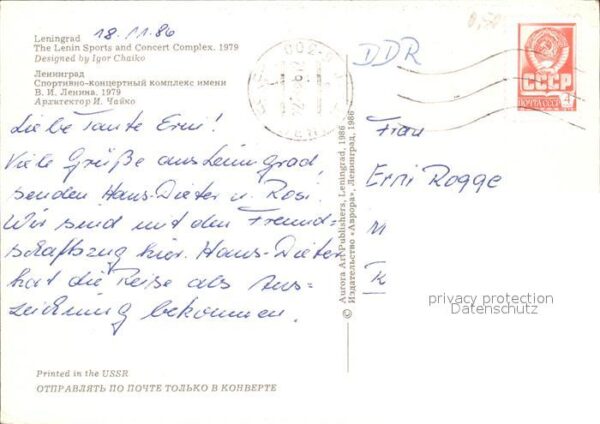 Leningrad 18.11.86
The Lenin Sports and Concert Complex. 1979
Designed by Igor Chaiko
Ленинград
Спортивно-концертный комплекс имени
В. И. Ленина. 1979
Архитектор И. Чайко
Liebe Tante Erni!
Viele Grüße aus Leningrad,
senden Hans-Dieter u. Rosi.
Wir sind mit den Freund-
schaftszug hier. Hans-Dieter
hat die Reise als Aus-
zeichnung bekommen.
Printed in the USSR
ОТПРАВЛЯТЬ ПО ПОЧТЕ ТОЛЬКО В КОНВЕРТЕ
© Aurora Art Publishers, Leningrad, 1986
Издательство «Аврора», Ленинград, 1986
DDR
0,50
СССР
ПОЧТА СССР 4
Frau
Erni Rogge
M
K
privacy protection
Datenschutz